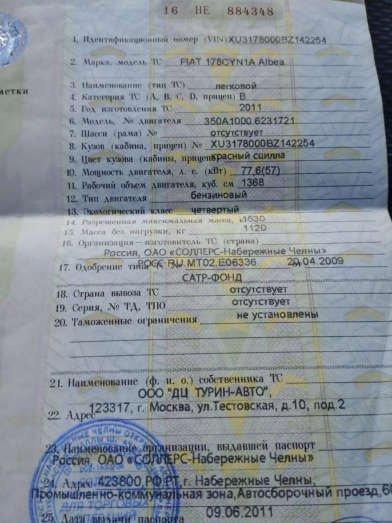 16 НЕ 884348
1. Идентификационный номер (VIN) XU3178000BZ142254
2. Марка, модель ТС FIAT 178CYN1A Albea
3. Наименование (тип ТС) легковой
4. Категория ТС (А, В, С, D, прицеп) В
метки
5. Год изготовления ТС 2011
6. Модель, № двигателя 350A1000 6231721
7. Шасси (рама) № отсутствует
8. Кузов (кабина, прицеп) № XU3178000BZ142254
9. Цвет кузова (кабины, прицепа) красный сцилла
10. Мощность двигателя, л. с. (кВт) 77,6(57)
11. Рабочий объем двигателя, куб. см 1368
12. Тип двигателя бензиновый
13. Экологический класс четвертый
14. Разрешенная максимальная масса, кг 1630
15. Масса без нагрузки, кг 1120
16. Организация - изготовитель ТС (страна)
Россия, ОАО «СОЛЛЕРС-Набережные Челны»
17. Одобрение типа РОСС RU.МТ02.Е06336 20.04.2009
САТР-ФОНД
18. Страна вывоза ТС отсутствует
19. Серия, № ТД, ТПО отсутствует
20. Таможенные ограничения не установлены
21. Наименование (ф. и. о.) собственника ТС
ООО "ДЦ ТУРИН-АВТО",
22. Адрес 123317, г. Москва, ул.Тестовская, д.10, под.2
23. Наименование организации, выдавшей паспорт
Россия, ОАО «СОЛЛЕРС-Набережные Челны»
24. Адрес 423800,РФ,РТ,г. Набережные Челны,
Промышленно-коммунальная зона,Автосборочный проезд,
25. Дата выдачи паспорта 09.06.2011